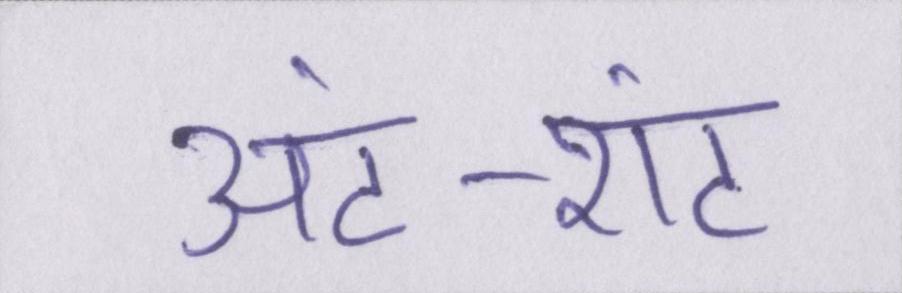 अंट-शंट